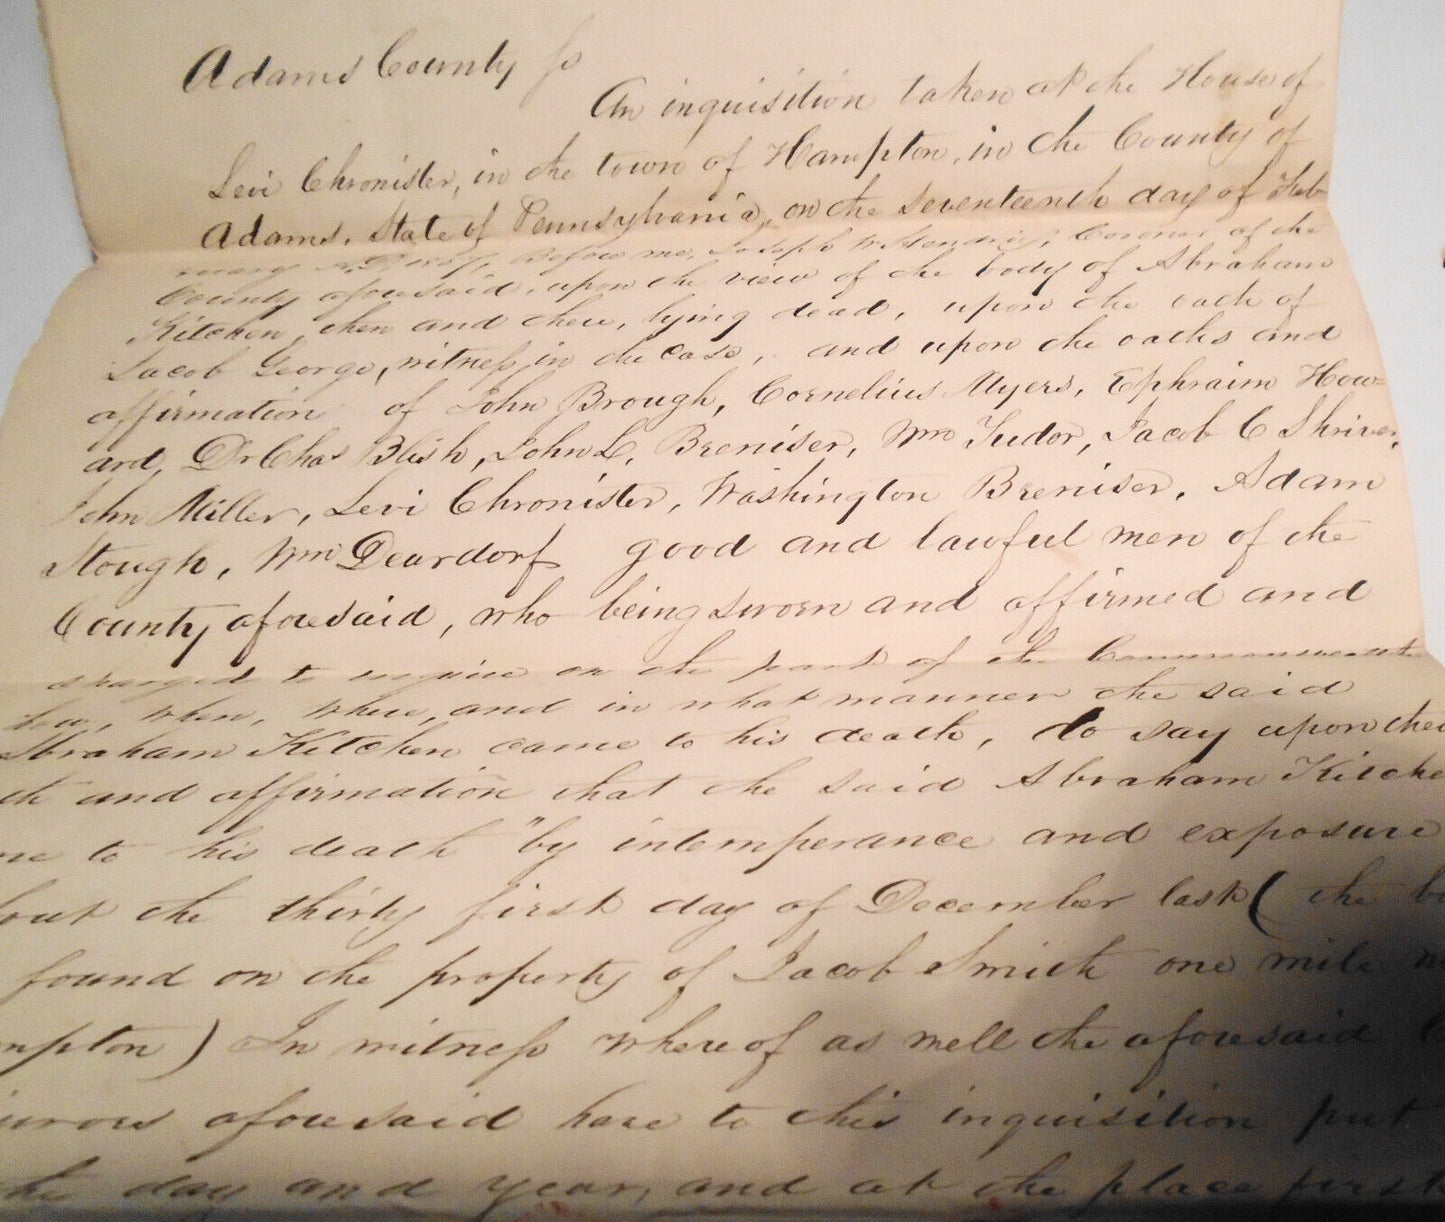 Adams County ss
An inquisition taken at the House of
Levi Chronister, in the town of Hampton, in the County of
Adams, State of Pennsylvania, on the seventeenth day of Feb
ruary A.D. Before me, Joseph Coroner of the
County aforesaid, upon the view of the body of Abraham
Kitchen, then and there, lying dead, upon the oath of
Jacob George, witness in the case, and upon the oaths and
affirmation of John Brough, Cornelius Myers, Ephraim How=
ard, Dr Chas Blish, John L. Breniser, Wm Tudor, Jacob C Shriver,
John Miller, Levi Chronister, Washington Breniser, Adam
Stough, Wm Deardorf good and lawful men of the
County aforesaid, who being sworn and affirmed and
charged to inquire on the part of the Commonwealth
how, when, where, and in what manner the said
Abraham Kitchen came to his death, do say upon their
th and affirmation that the said Abraham Kitche
me to his death "by intemperance and exposure
bout the thirty first day of December last (the bo
found on the property of Jacob Smith one mile
mpton) In witness whereof as well the aforesaid C
jurors aforesaid have to this inquisition put
the day and year, and at the place first